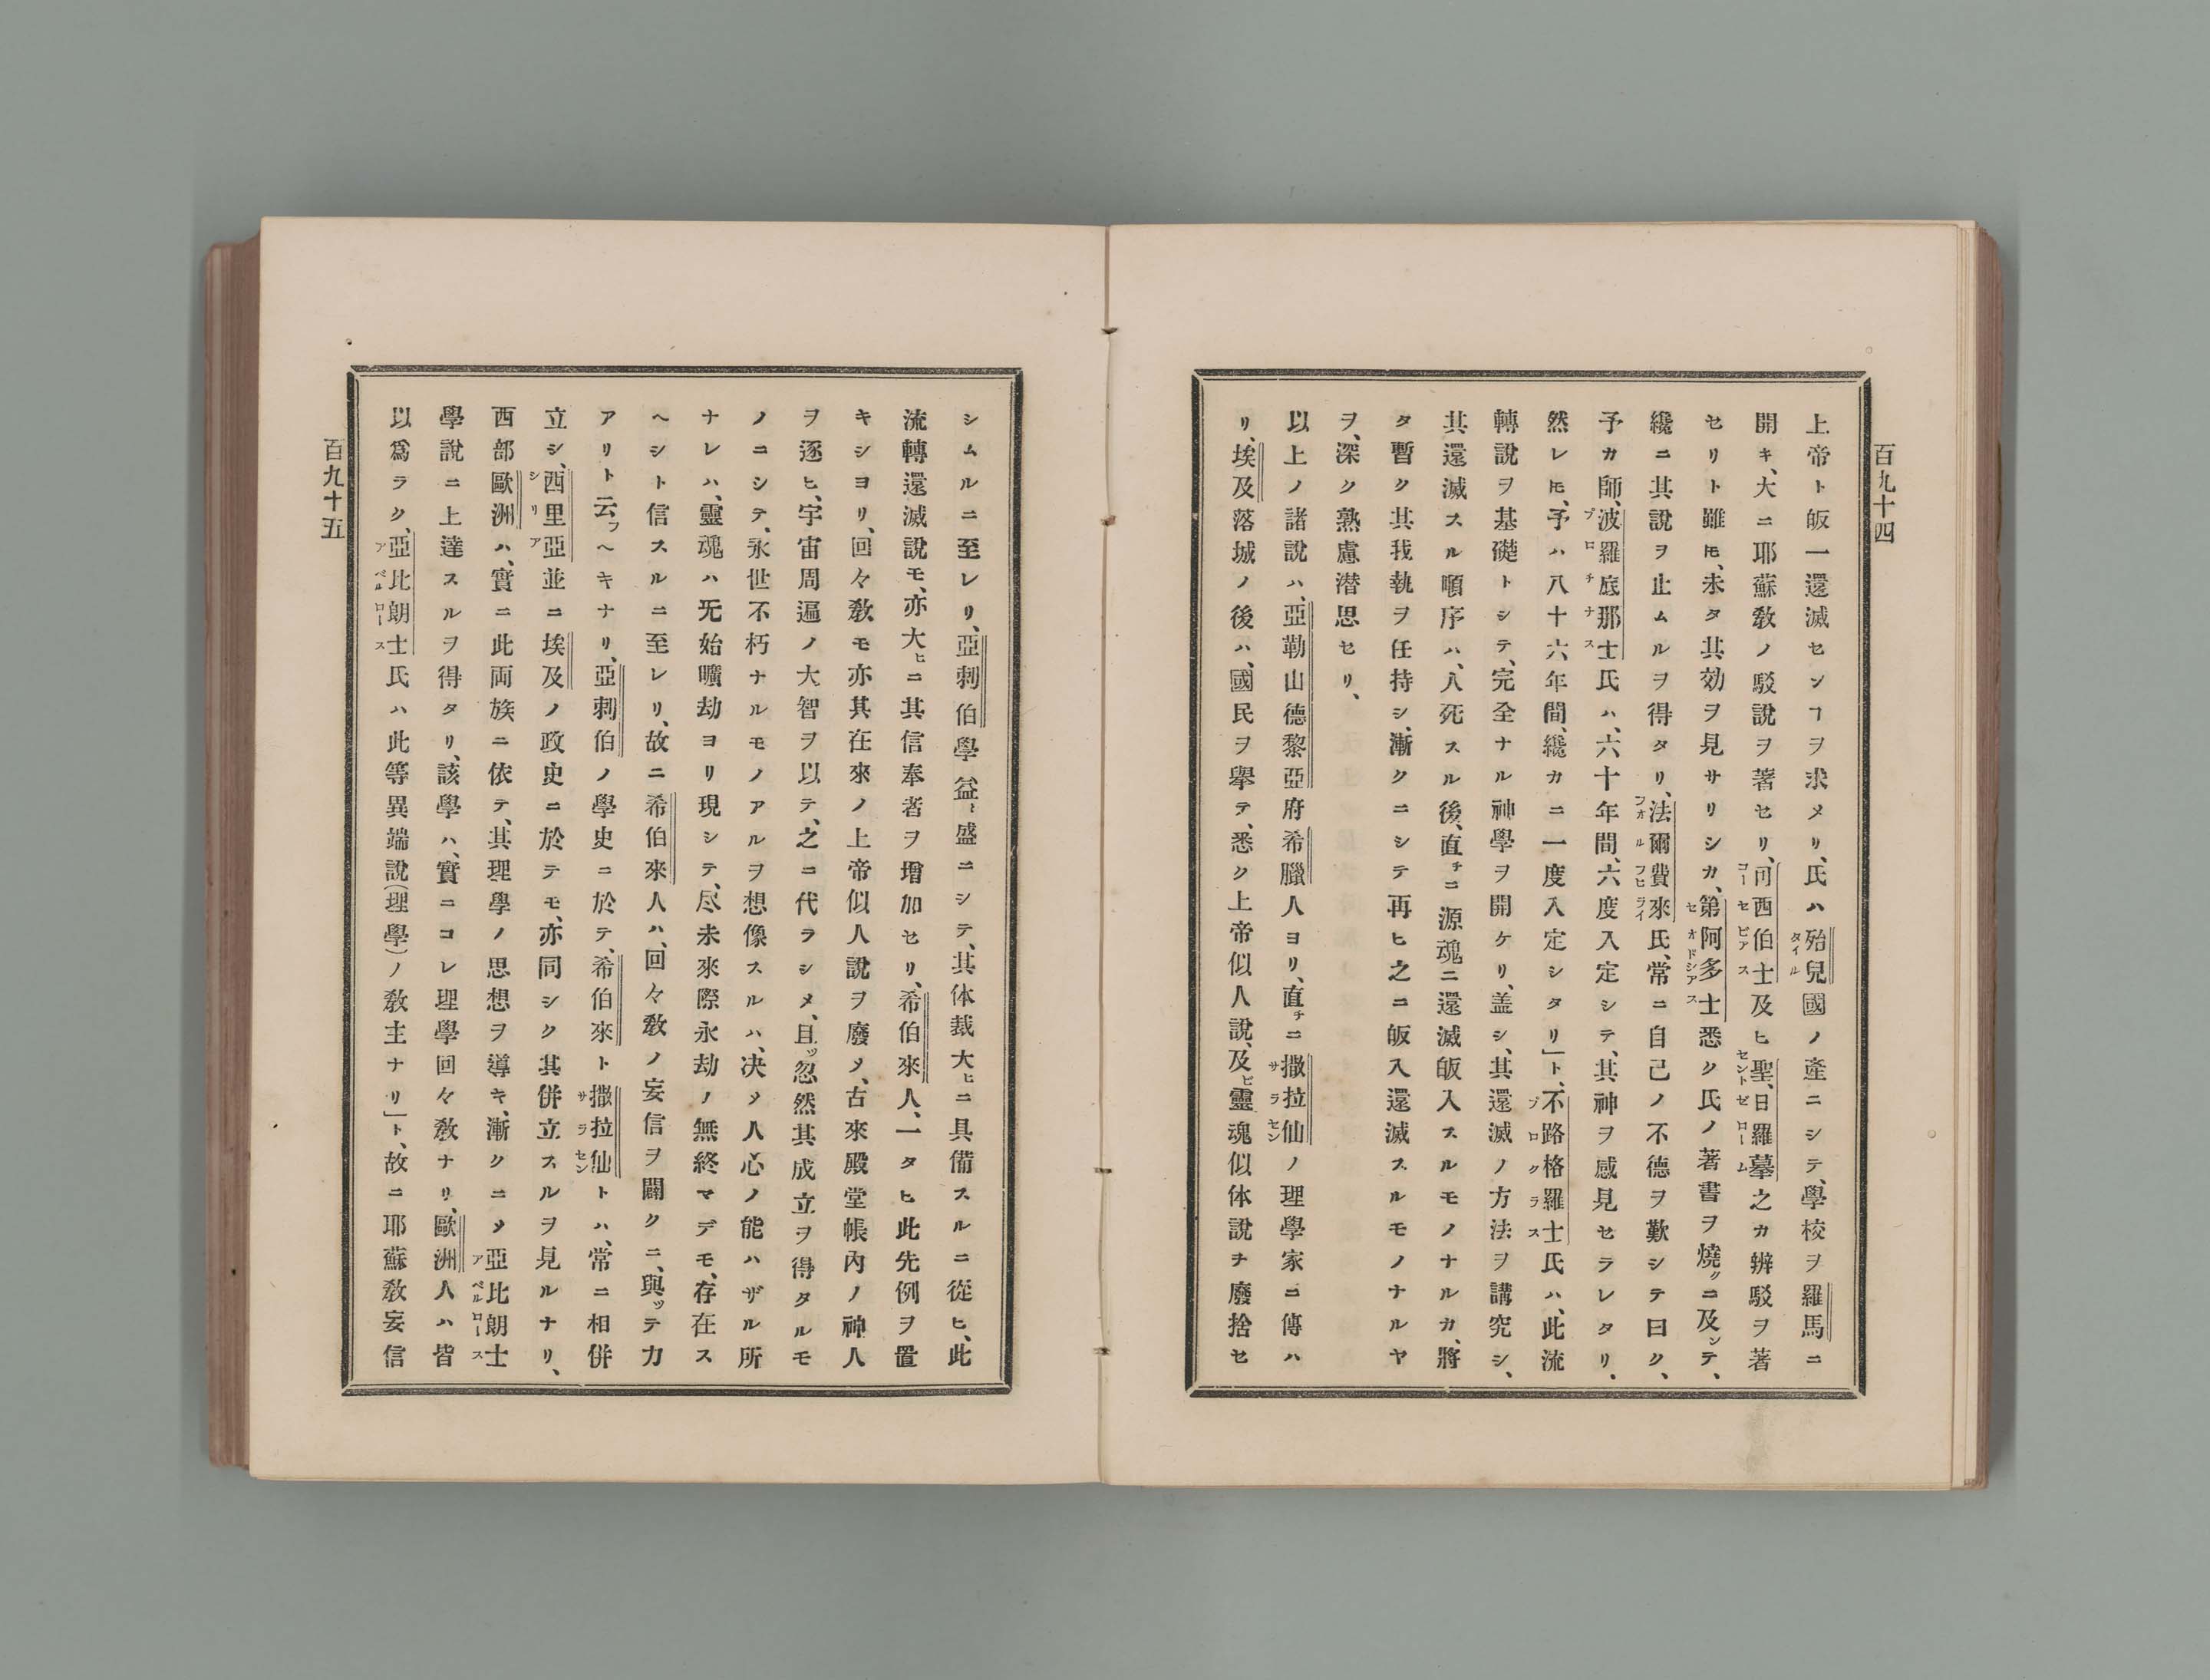 百九十四
上帝ト皈一還滅センヿヲ求メリ、氏ハ殆兒國ノ產ニシテ、學校ヲ羅馬ニ
開キ、大ニ耶蘇敎ノ駁說ヲ著セリ、可西伯士及ヒ聖、日羅摹之カ辨駁ヲ著
セリト雖𪜈、未タ其効ヲ見サリシカ、第阿多士悉ク氏ノ著書ヲ燒クニ及ンテ、
纔ニ其說ヲ止ムルヲ得タリ、法爾費來氏、常ニ自己ノ不德ヲ歎シテ曰ク、
予カ師、波羅底那士氏ハ、六十年間、六度入定シテ、其神ヲ感見セラレタリ、
然レ𪜈、予ハ八十六年間、纔カニ一度入定シタリ」ト、不路格羅士氏ハ、此流
轉說ヲ基礎トシテ、完全ナル神學ヲ開ケリ、盖シ、其還滅ノ方法ヲ講究シ、
其還滅スル順序ハ、人死スル後、直チニ源魂ニ還滅皈入スルモノナルカ、將
タ暫ク其我執ヲ任持シ、漸クニシテ再ヒ之ニ皈入還滅スルモノナルヤ
ヲ、深ク熟慮潜思セリ、
以上ノ諸說ハ、亞勒山德黎亞府希臘人ヨリ、直チニ撒拉仙ノ理學家ニ傳ハ
リ、埃及落城ノ後ハ、國民ヲ擧テ、悉ク上帝似人說、及ヒ靈魂似体說ヲ廢捨セ
百九十五
シムルニ至レリ、亞剌伯學益〻盛ニシテ、其体裁大ヒニ具備スルニ從ヒ、此
流轉還滅說モ、亦大ヒニ其信奉者ヲ增加セリ、希伯來人、一タヒ此先例ヲ置
キシヨリ、回々敎モ亦其在來ノ上帝似人說ヲ廢メ、古來殿堂帳內ノ神人
ヲ逐ヒ、宇宙周遍ノ大智ヲ以テ、之ニ代ラシメ、且ツ忽然其成立ヲ得タルモ
ノニシテ、永世不朽ナルモノアルヲ想像スルハ、决メ人心ノ能ハザル所
ナレハ、靈魂ハ旡始曠劫ヨリ現シテ、尽未來際永劫ノ無終マデモ、存在ス
ヘシト信スルニ至レリ、故ニ希伯來人ハ、回々敎ノ妄信ヲ闢クニ、與ッテ力
アリト云フヘキナリ、亞剌伯ノ學史ニ於テ、希伯來ト撒拉仙トハ、常ニ相併
立シ、西里亞並ニ埃及ノ政史ニ於テモ、亦同シク其併立スルヲ見ルナリ、
西部歐洲ハ、實ニ此両族ニ依テ、其理學ノ思想ヲ導キ、漸クニメ亞比朗士
學說ニ上達スルヲ得タリ、該學ハ、實ニコレ理學回々敎ナリ、歐洲人ハ皆
以爲ラク、亞比朗士氏ハ此等異端說(理學)ノ敎主ナリ」ト、故ニ耶蘇敎妄信